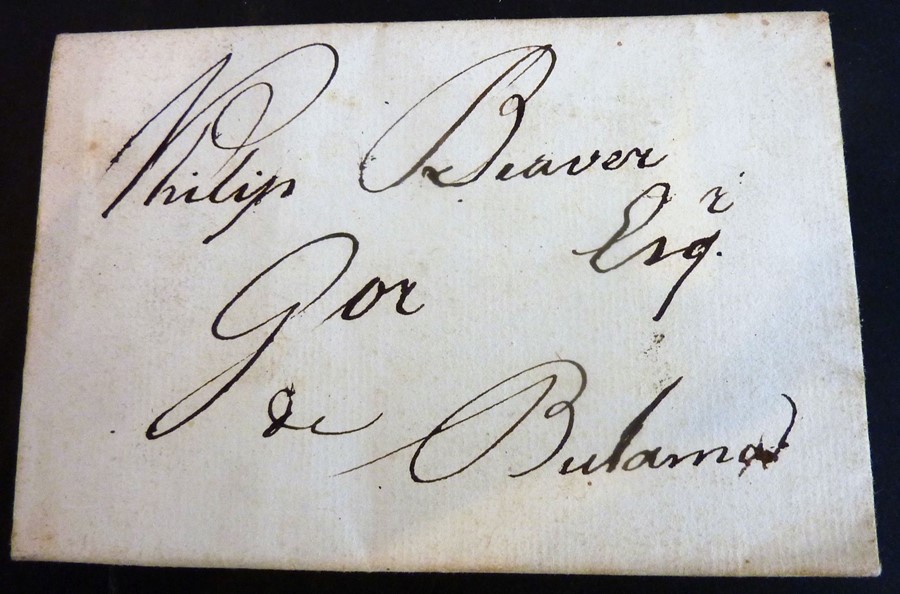 Philip Beaver
Esqr.
Gor
de Bulama